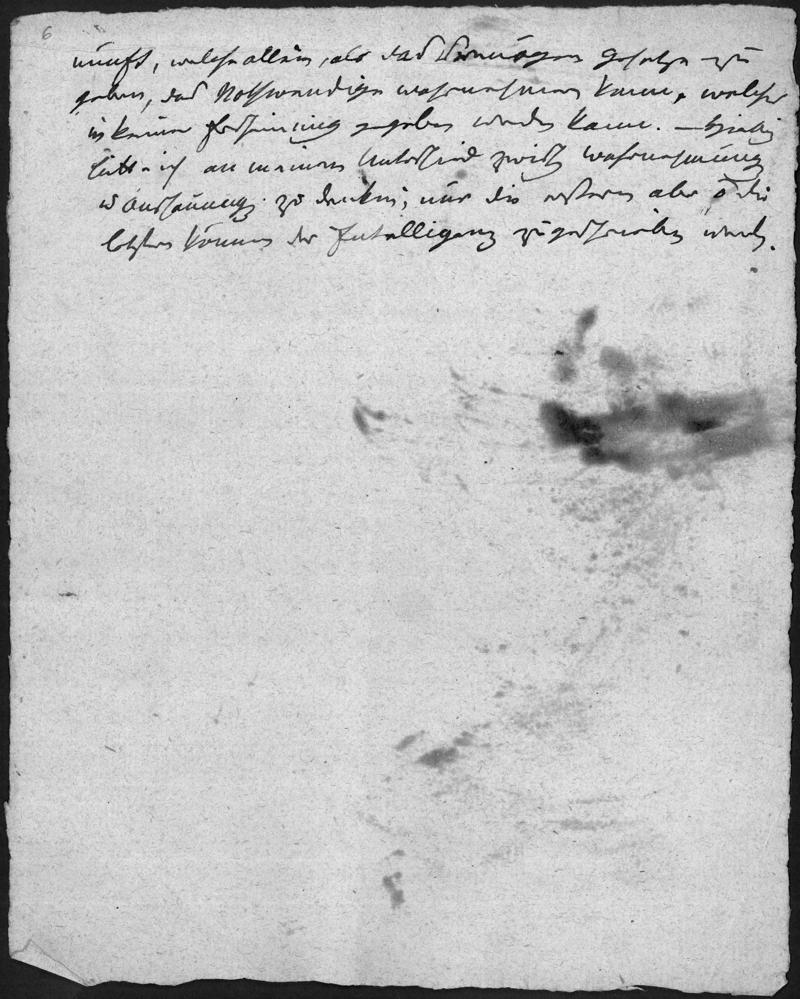 6
nunft, welche allein, als das Vermögen Gesetze zu
geben, das Nothwendige wahrnehmen kann, welches
in keiner Erscheinung gegeben werden kann. — Hiebey
bitt ich an meinen Unterschied zwisch Wahrnehmung
u Anschauung zu denken; nur die erstere aber die
letztere können der Intelligenz zugeschrieben werden.